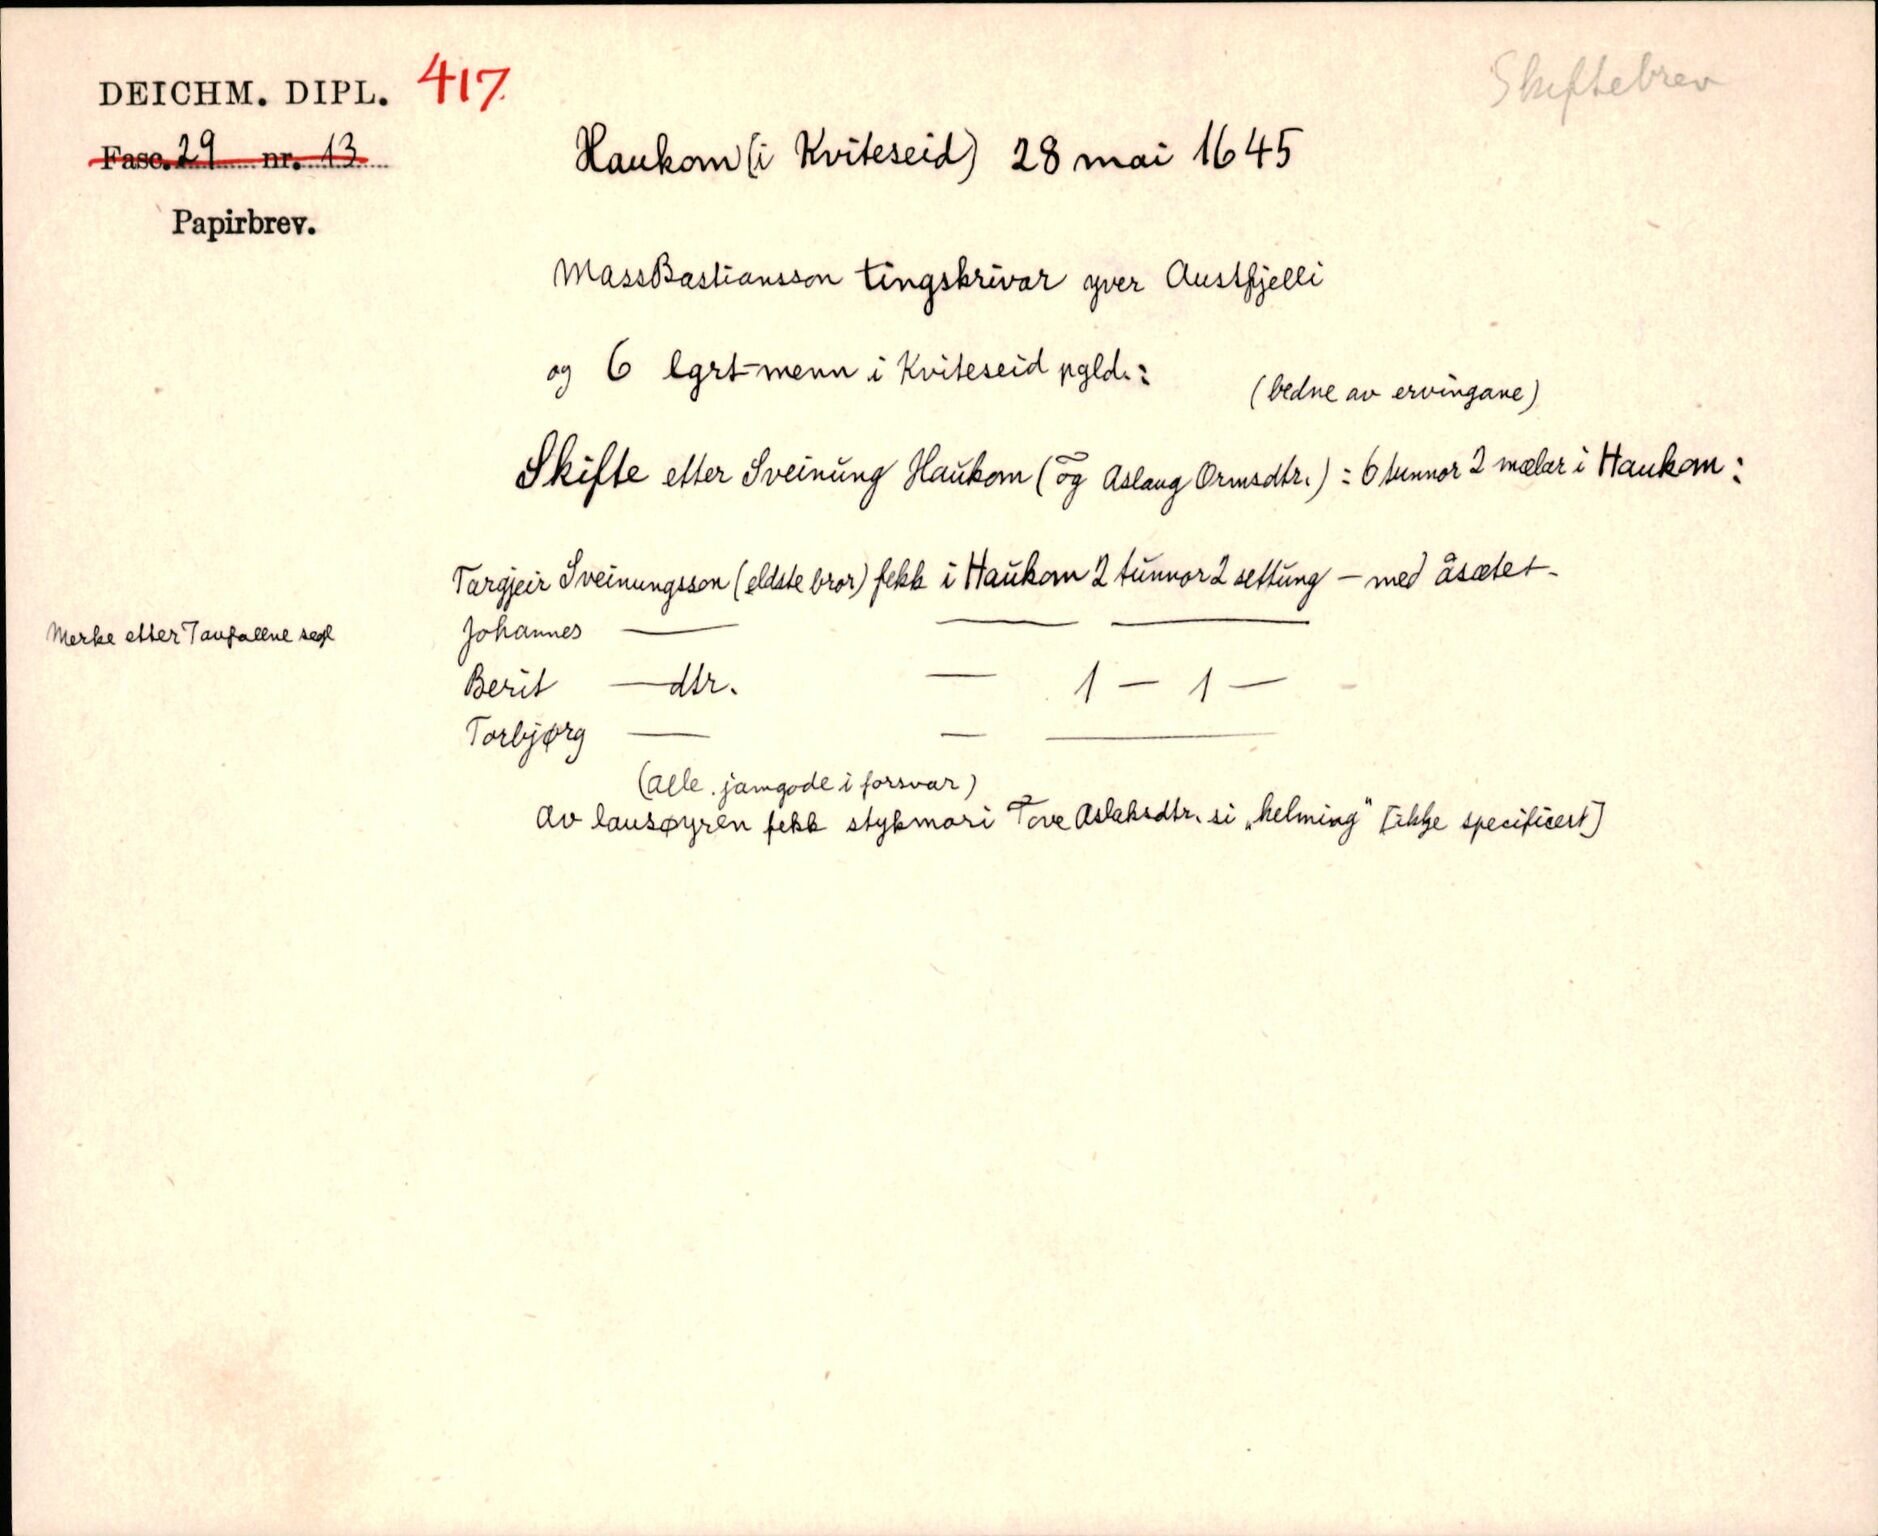 DEICHM. DIPL. 417.
Skiftebrev
Fasc. 29 nr. 13
Haukom (i Kviteseid) 28 mai 1645
Papirbrev.
Mass Bastiansson tingskrivar yver Austfjelli
og 6 lgrt-menn i Kviteseid pgld.:
(bedne av ervingane)
Skifte etter Sveinŭng Haŭkom (og Aslaug Ormsdtr.) : 6 tunnor 2 mælar i Haukom :
Targjeir Sveinungsson (eldste bror) fekk i Haŭkom 2 tŭnnor 2 settŭng — med åsætet -
Merke etter 7 avfallne segl
Johannes — — —
Berit — dtr. — 1 — 1 —
Torbjørg — — —
(alle jamgode i forsvar)
Av lausøyren fekk stykmori Tove Aslaksdtr. si „helming" [ikkje specificert]